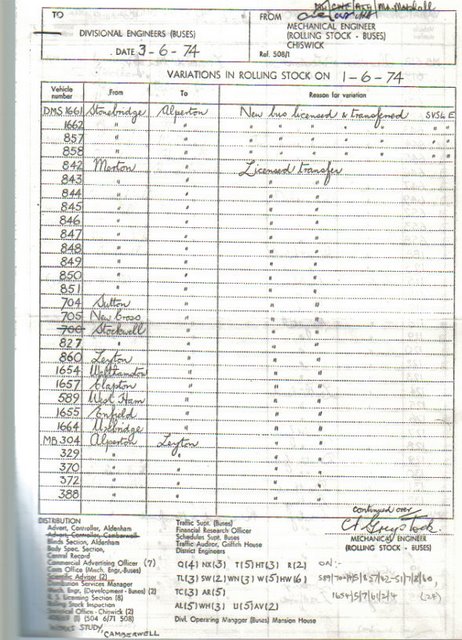 TO
DIVISIONAL ENGINEERS (BUSES)
DATE 3-6-74
FROM
MECHANICAL ENGINEER
(ROLLING STOCK - BUSES)
CHISWICK
Ref. 508/1
VARIATIONS IN ROLLING STOCK ON 1-6-74
Vehicle number From To Reason for variation
DMS 1661 Stonebridge Alperton New bus licensed & transferred
1662 " " " " " " "
857 " " " " " " "
858 " " " " " " "
842 Merton " Licensed transfer
843 " " " "
844 " " " "
845 " " " "
846 " " " "
847 " " " "
848 " " " "
849 " " " "
850 " " " "
851 " " " "
704 Sutton " " "
705 New Cross " " "
700 Stockwell " " "
827 " " " "
860 Leyton " " "
1654 Walthamstow " " "
1657 Clapton " " "
589 West Ham " " "
1655 Enfield " " "
1664 Uxbridge " " "
MB 304 Alperton Leyton " "
329 " " " "
370 " " " "
372 " " " "
388 " " " "
continued over
MECHANICAL ENGINEER
(ROLLING STOCK - BUSES)
DISTRIBUTION
Advert. Controller, Aldenham
Advert. Controller, Camberwell
Blinds Section, Aldenham
Body Spec. Section,
Central Record
Commercial Advertising Officer (7)
Costs Office (Mech. Engr.-Buses)
Scientific Advisor (2)
Distribution Services Manager
Mech. Engr. (Development - Buses) (2)
Licensing Section (8)
Rolling Stock Inspection
Office - Chiswick (2)
(1) (504 6/71 508)
WORKS STUDY
CAMBERWELL
Traffic Supt. (Buses)
Financial Research Officer
Schedules Supt. Buses
Traffic Auditor, Griffith House
District Engineers
Q(4) NX(3) T(5) HT(3) R(2)
TL(3) SW(2) WN(3) W(5) HW(6)
TC(3) AR(5)
AL(5) WH(3) U(5) AV(2)
Divl. Operating Manager (Buses) Mansion House
ON:-